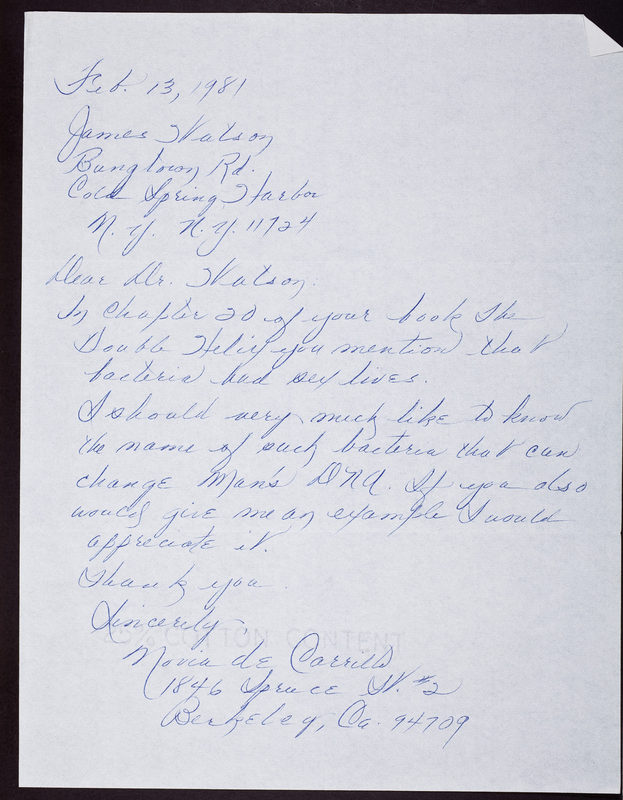 Feb. 13, 1981
James Watson
Bungtown Rd.
Cold Spring Harbor
N.Y. N.Y. 11724
Dear Dr. Watson:
In Chapter 20 of your book The
Double Helix you mention that
bacteria had sex lives.
I should very much like to know
the name of such bacteria that can
change Man's DNA. If you also
would give me an example I would
appreciate it.
Thank you.
Sincerely,
25% COTTON CONTENT
Maria de Carrillo
1846 Spruce St. #2
Berkeley, Ca. 94709